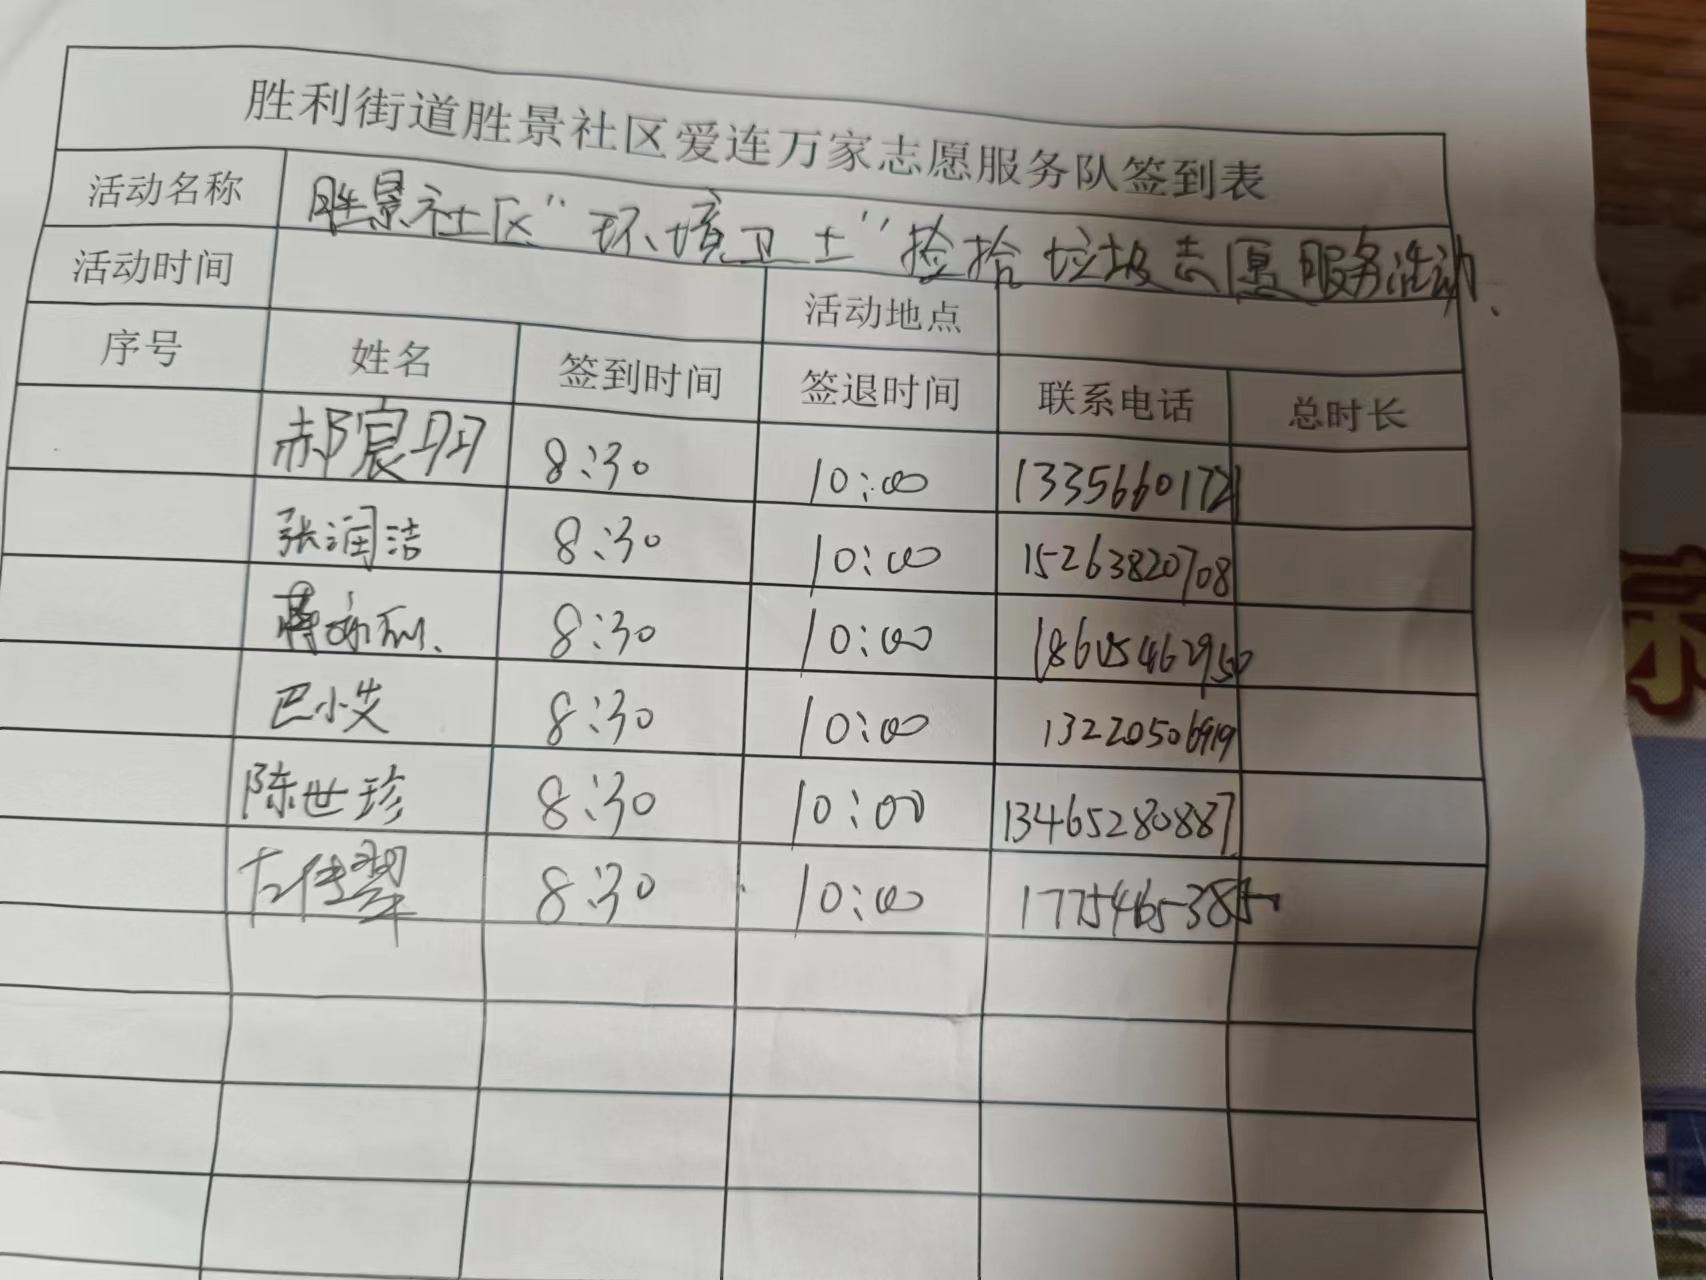 胜利街道胜景社区爱连万家志愿服务队签到表
活动名称 胜景社区“环境卫士”捡拾垃圾志愿服务活动.
活动时间 活动地点
序号 姓名 签到时间 签退时间 联系电话 总时长
郝宸玥 8:30 10:00 13356601721
张润洁 8:30 10:00 15263820708
8:30 10:00 18605462950
巴小艾 8:30 10:00 13220506919
陈世珍 8:30 10:00 13465280887
左佳翠 8:30 10:00 17754653855